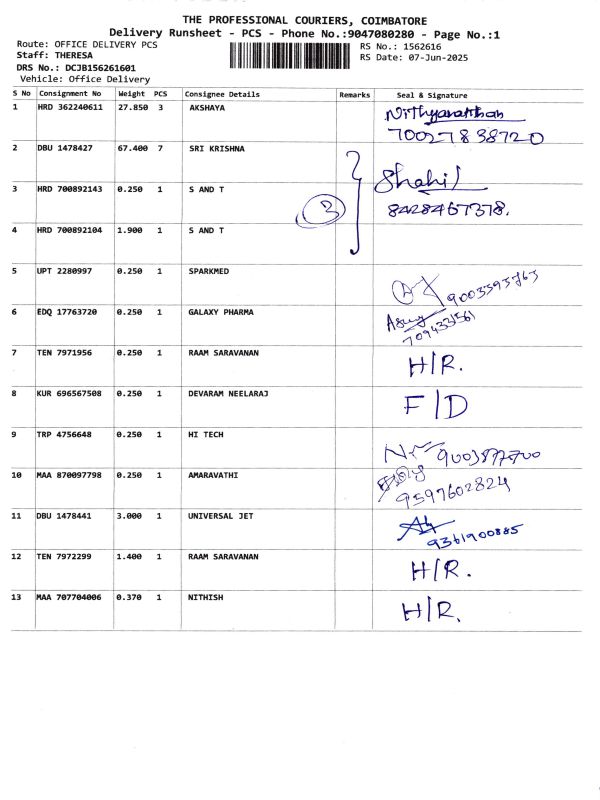 THE PROFESSIONAL COURIERS, COIMBATORE
Delivery Runsheet - PCS - Phone No.:9047080280 - Page No.:1
Route: OFFICE DELIVERY PCS
RS No.: 1562616
Staff: THERESA
RS Date: 07-Jun-2025
DRS No.: DCJB156261601
Vehicle: Office Delivery
S No Consignment No Weight PCS Consignee Details Remarks Seal & Signature
1 HRD 362240611 27.850 3 AKSHAYA
70027838720
2 DBU 1478427 67.400 7 SRI KRISHNA
Shahil
3 HRD 700892143 0.250 1 S AND T 3 8428467378.
4 HRD 700892104 1.900 1 S AND T
5 UPT 2280997 0.250 1 SPARKMED
6 EDQ 17763720 0.250 1 GALAXY PHARMA
7 TEN 7971956 0.250 1 RAAM SARAVANAN H/R.
8 KUR 696567508 0.250 1 DEVARAM NEELARAJ F/D
9 TRP 4756648 0.250 1 HI TECH
10 MAA 870097798 0.250 1 AMARAVATHI
9597602824
11 DBU 1478441 3.000 1 UNIVERSAL JET
9361900885
12 TEN 7972299 1.400 1 RAAM SARAVANAN H/R.
13 MAA 707704006 0.370 1 NITHISH H/R.